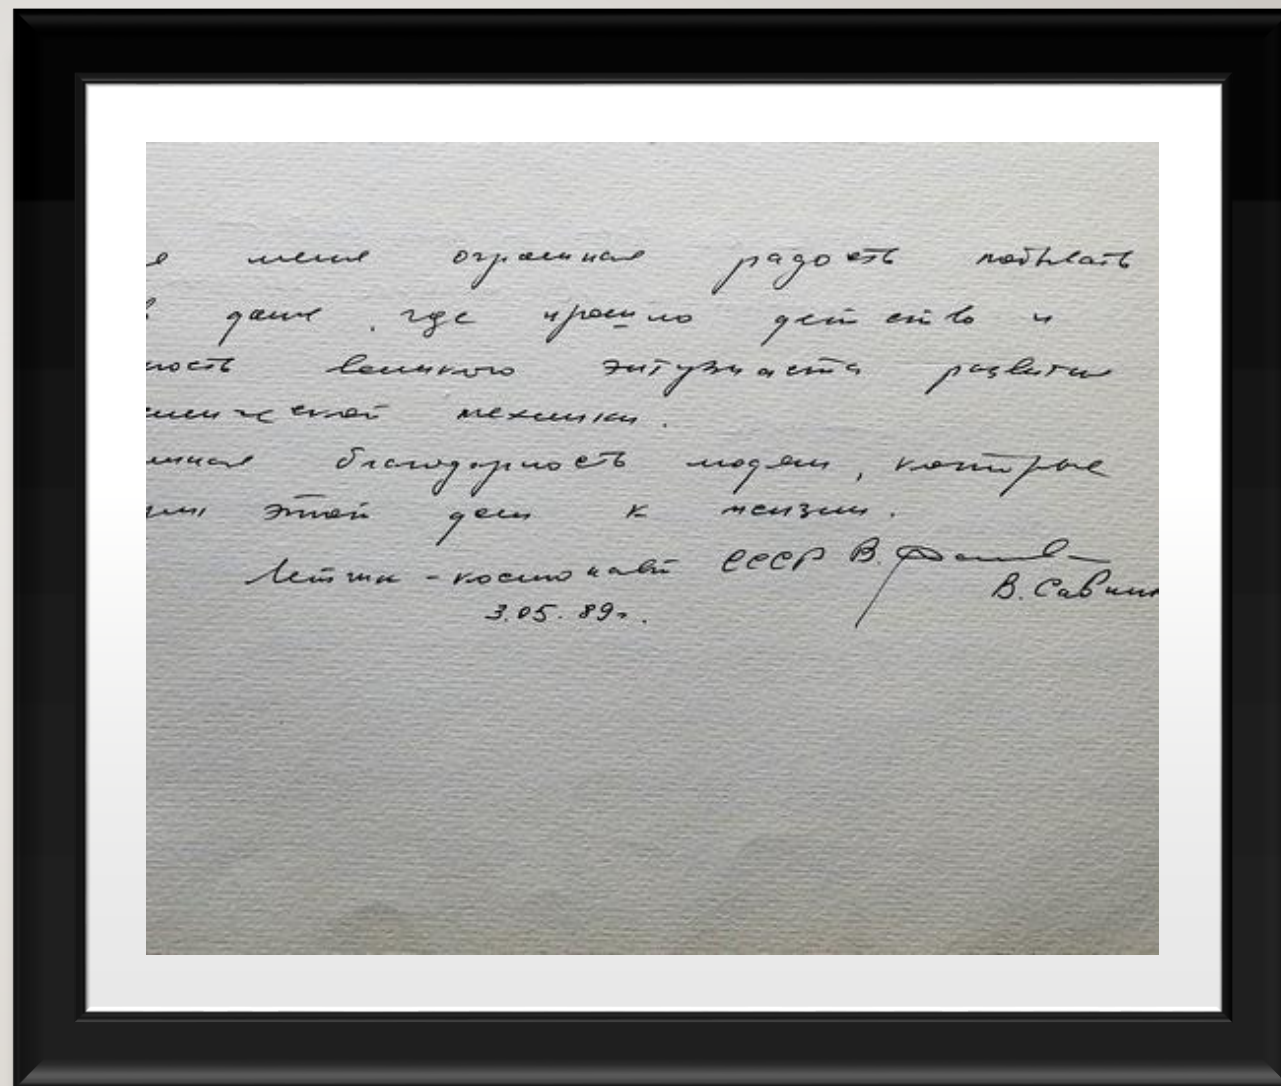 меня огромная радость побывать
доме, где прошло детство и
ность великого энтузиаста развития
ической механики.
благодарность людям, которые
этот дом к жизни.
Летчик-космонавт СССР В.
В. Савин
3.05.89г.